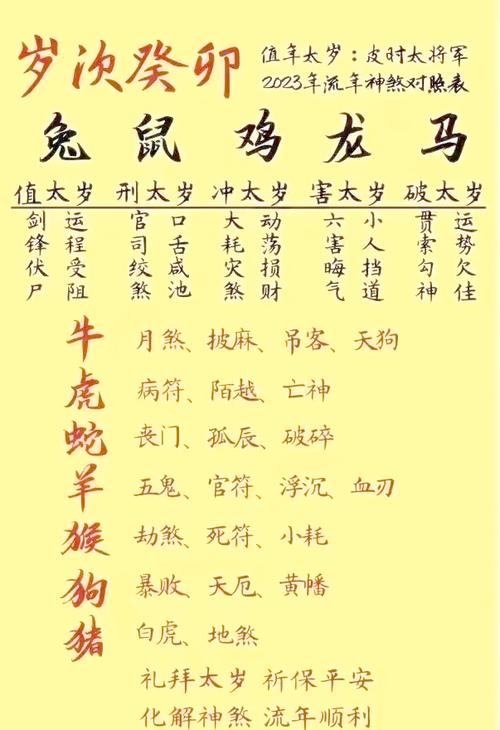 岁次癸卯
值年太岁：皮时太将军
2023年流年神煞对照表
兔 鼠 鸡 龙 马
值太岁 刑太岁 冲太岁 害太岁 破太岁
剑锋伏尸
运程受阻
官司绞煞
口舌咸池
大耗灾煞
动荡损财
六害晦气
小人挡道
贯索勾神
运势欠佳
牛 月煞、披麻、吊客、天狗
虎 病符、陌越、亡神
蛇 丧门、孤辰、破碎
羊 五鬼、官符、浮沉、血刃
猴 劫煞、死符、小耗
狗 暴败、天厄、黄幡
猪 白虎、地煞
礼拜太岁 祈保平安
化解神煞 流年顺利